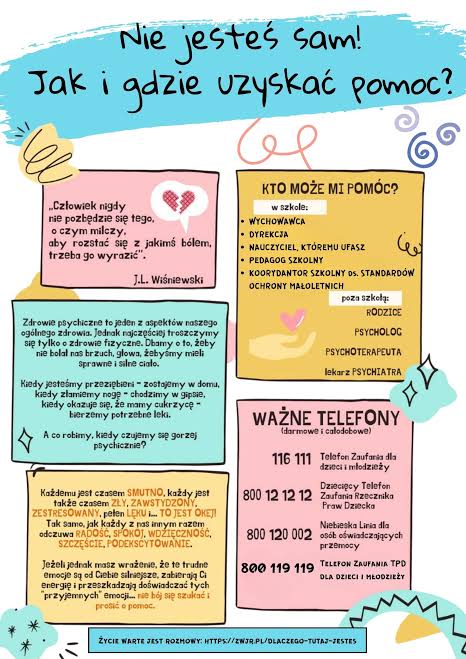 Nie jesteś sam!
Jak i gdzie uzyskać pomoc?
„Człowiek nigdy
nie pozbędzie się tego,
o czym milczy,
aby rozstać się z jakimś bólem,
trzeba go wyrazić”.
J.L. Wiśniewski
KTO MOŻE MI POMÓC?
w szkole:
WYCHOWAWCA
DYREKCJA
NAUCZYCIEL, KTÓREMU UFASZ
PEDAGOG SZKOLNY
KOORYDANTOR SZKOLNY DS. STANDARDÓW
OCHRONY MAŁOLETNICH
poza szkołą:
RODZICE
PSYCHOLOG
PSYCHOTERAPEUTA
lekarz PSYCHIATRA
Zdrowie psychiczne to jeden z aspektów naszego
ogólnego zdrowia. Jednak najczęściej troszczymy
się tylko o zdrowie fizyczne. Dbamy o to, żeby
nie bolał nas brzuch, głowa, żebyśmy mieli
sprawne i silne ciało.
Kiedy jesteśmy przeziębieni - zostajemy w domu,
kiedy złamiemy nogę - chodzimy w gipsie,
kiedy okazuje się, że mamy cukrzycę -
bierzemy potrzebne leki.
A co robimy, kiedy czujemy się gorzej
psychicznie?
WAŻNE TELEFONY
(darmowe i całodobowe)
116 111 Telefon Zaufania dla
dzieci i młodzieży
800 12 12 12 Dziecięcy Telefon
Zaufania Rzecznika
Praw Dziecka
800 120 002 Niebieska Linia dla
osób oświadczających
przemocy
800 119 119 TELEFON ZAUFANIA TPD
DLA DZIECI I MŁODZIEŻY
Każdemu jest czasem SMUTNO, każdy jest
także czasem ZŁY, ZAWSTYDZONY,
ZESTRESOWANY, pełen LĘKU i... TO JEST OKEJ!
Tak samo, jak każdy z nas innym razem
odczuwa RADOŚĆ, SPOKÓJ, WDZIĘCZNOŚĆ,
SZCZĘŚCIE, PODEKSCYTOWANIE.
Jeżeli jednak masz wrażenie, że te trudne
emocje są od Ciebie silniejsze, zabierają Ci
energię i przeszkadzają doświadczać tych
"przyjemnych" emocji... nie bój się szukać i
prosić o pomoc.
ŻYCIE WARTE JEST ROZMOWY: HTTPS://ZWJR.PL/DLACZEGO-TUTAJ-JESTES